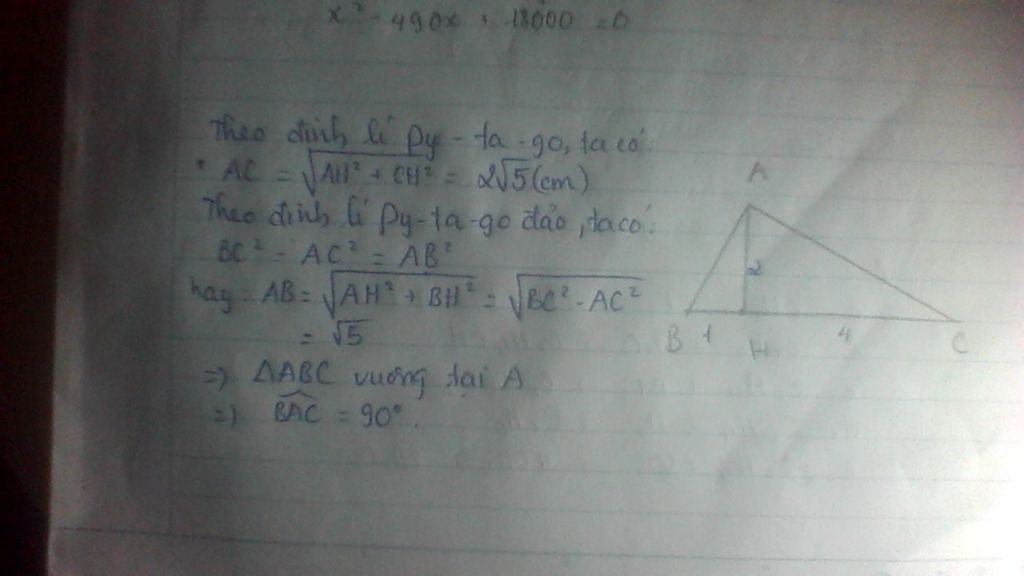 x² - 490x + 18000 = 0
Theo định lí Py-ta-go, ta có:
* AC = √AH² + CH² = 2√5 (cm)
Theo định lí Py-ta-go đảo, ta có:
BC² - AC² = AB²
hay: AB = √AH² + BH² = √BC² - AC²
= √5
=> ΔABC vuông tại A
=> BAC = 90°.
A
2
B 1 H 4 C